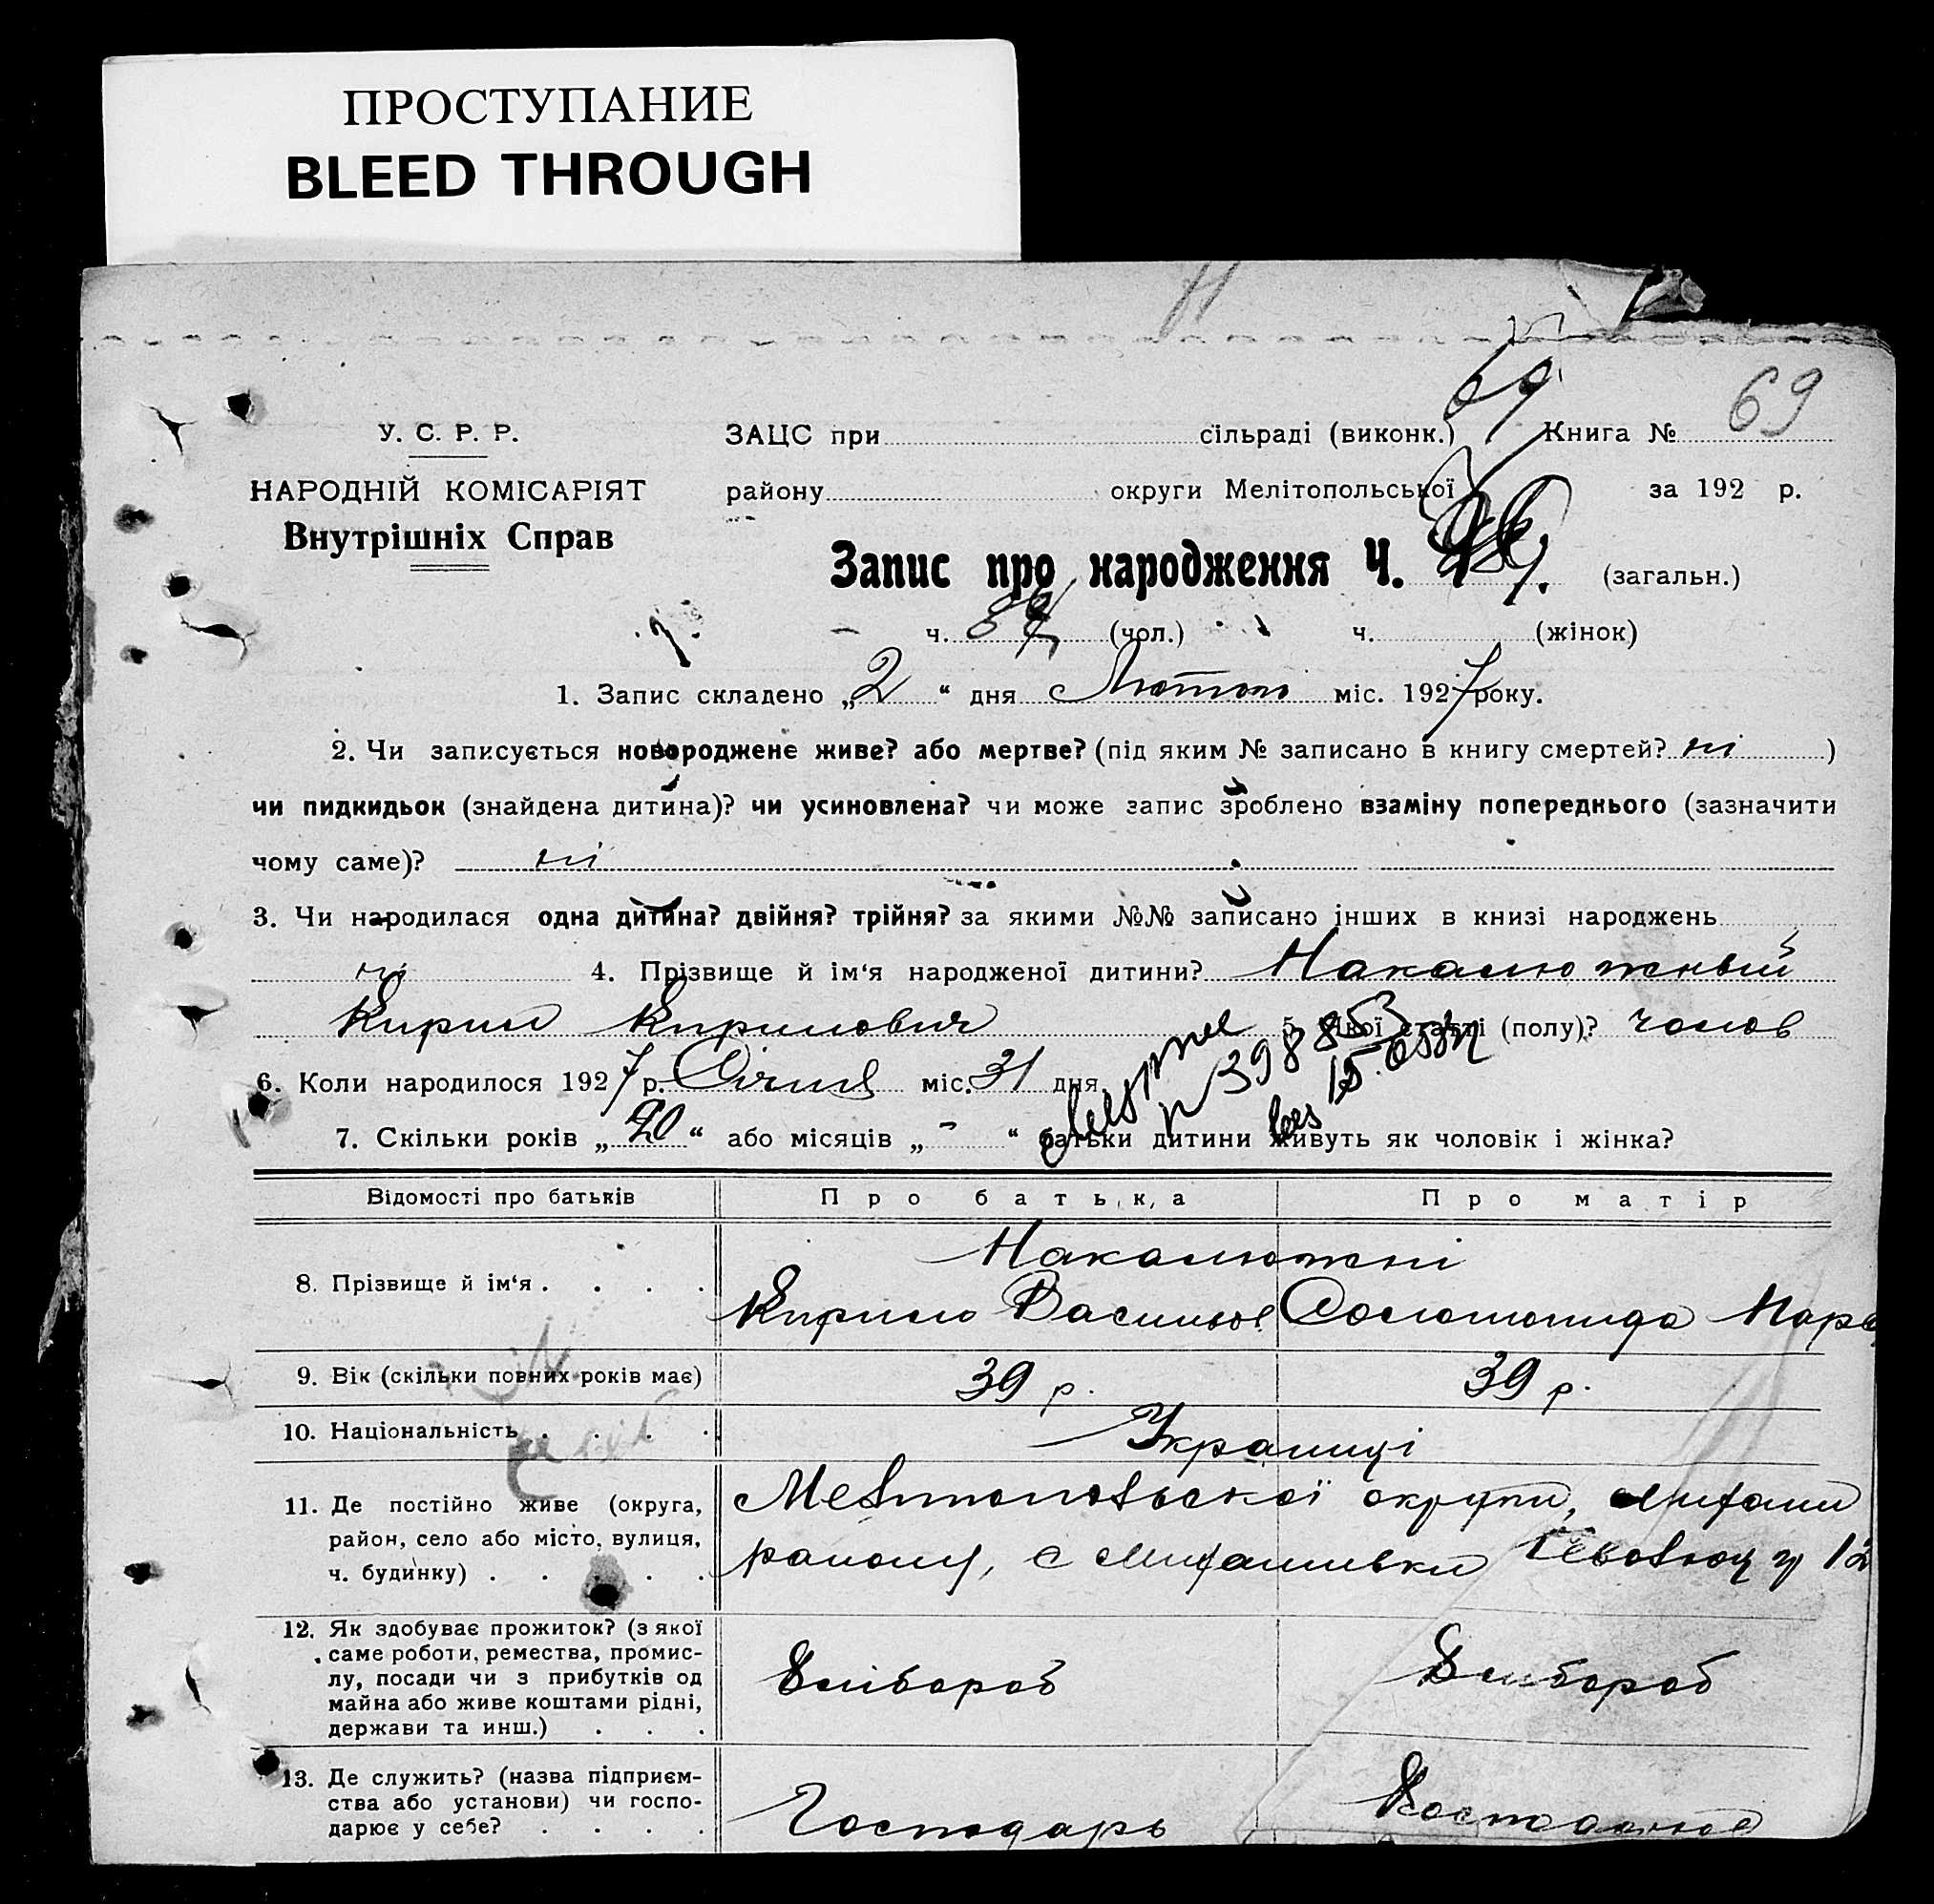 ПРОСТУПАНИЕ
BLEED THROUGH
69
69
У. С. Р. Р.
ЗАЦС при сільраді (виконк.) Книга №
НАРОДНІЙ КОМІСАРІЯТ
району округи Мелітопольської за 192 р.
Внутрішніх Справ
Запис про народження Ч. (загальн.)
ч. (чол.) ч. (жінок)
1. Запис складено „2“ дня Лютого міс. 1927 року.
2. Чи записується новороджене живе? або мертве? (під яким № записано в книгу смертей? ні )
чи пидкидьок (знайдена дитина)? чи усиновлена? чи може запис зроблено взаміну попереднього (зазначити
чому саме)? ні
3. Чи народилася одна дитина? двійня? трійня? за якими №№ записано інших в книзі народжень
ні 4. Прізвище й ім‘я народженої дитини? Накалюжный
Кирил Кирилович 5. Якої статті (полу)? чолов
6. Коли народилося 1927 р. Січня міс. 31 дня.
39885
7. Скільки років „20“ або місяців „-“ батьки дитини живуть як чоловік і жінка?
Відомості про батьків Про батька Про матір
Накалюжні
8. Прізвище й ім‘я . . . . Кирило Васильов Соломонида Марк
9. Вік (скільки повних років має) 39 р. 39 р.
10. Національність . . . . Украинці
11. Де постійно живе (округа, Мелітопольської округи,
район, село або місто, вулиця, району, с 12
ч. будинку) . . . . .
12. Як здобуває прожиток? (з якої
саме роботи, ремества, промис-
лу, посади чи з прибутків од Хлібороб Хлібороб
майна або живе коштами рідні,
держави та инш.) . . .
13. Де служить? (назва підприєм-
ства або установи) чи госпо-
дарює у себе? . . . . Господарь